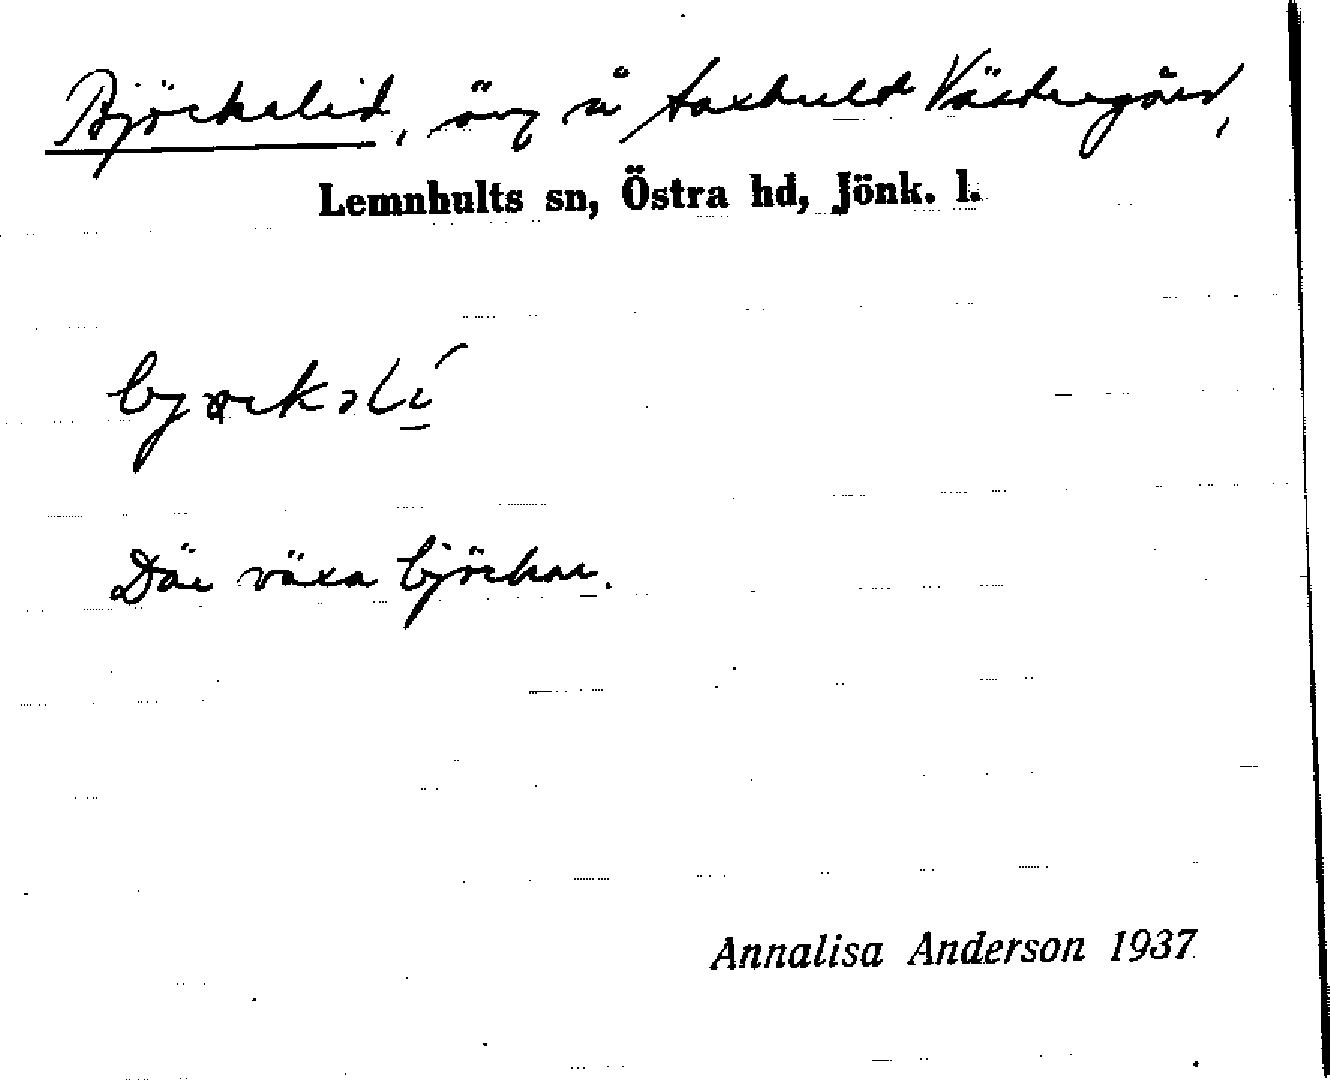 Björkelid, äng å Taxhult Västregård,
Lemnhults sn, Östra hd, Jönk. l.
Där växa björkar.
Annalisa Anderson 1937